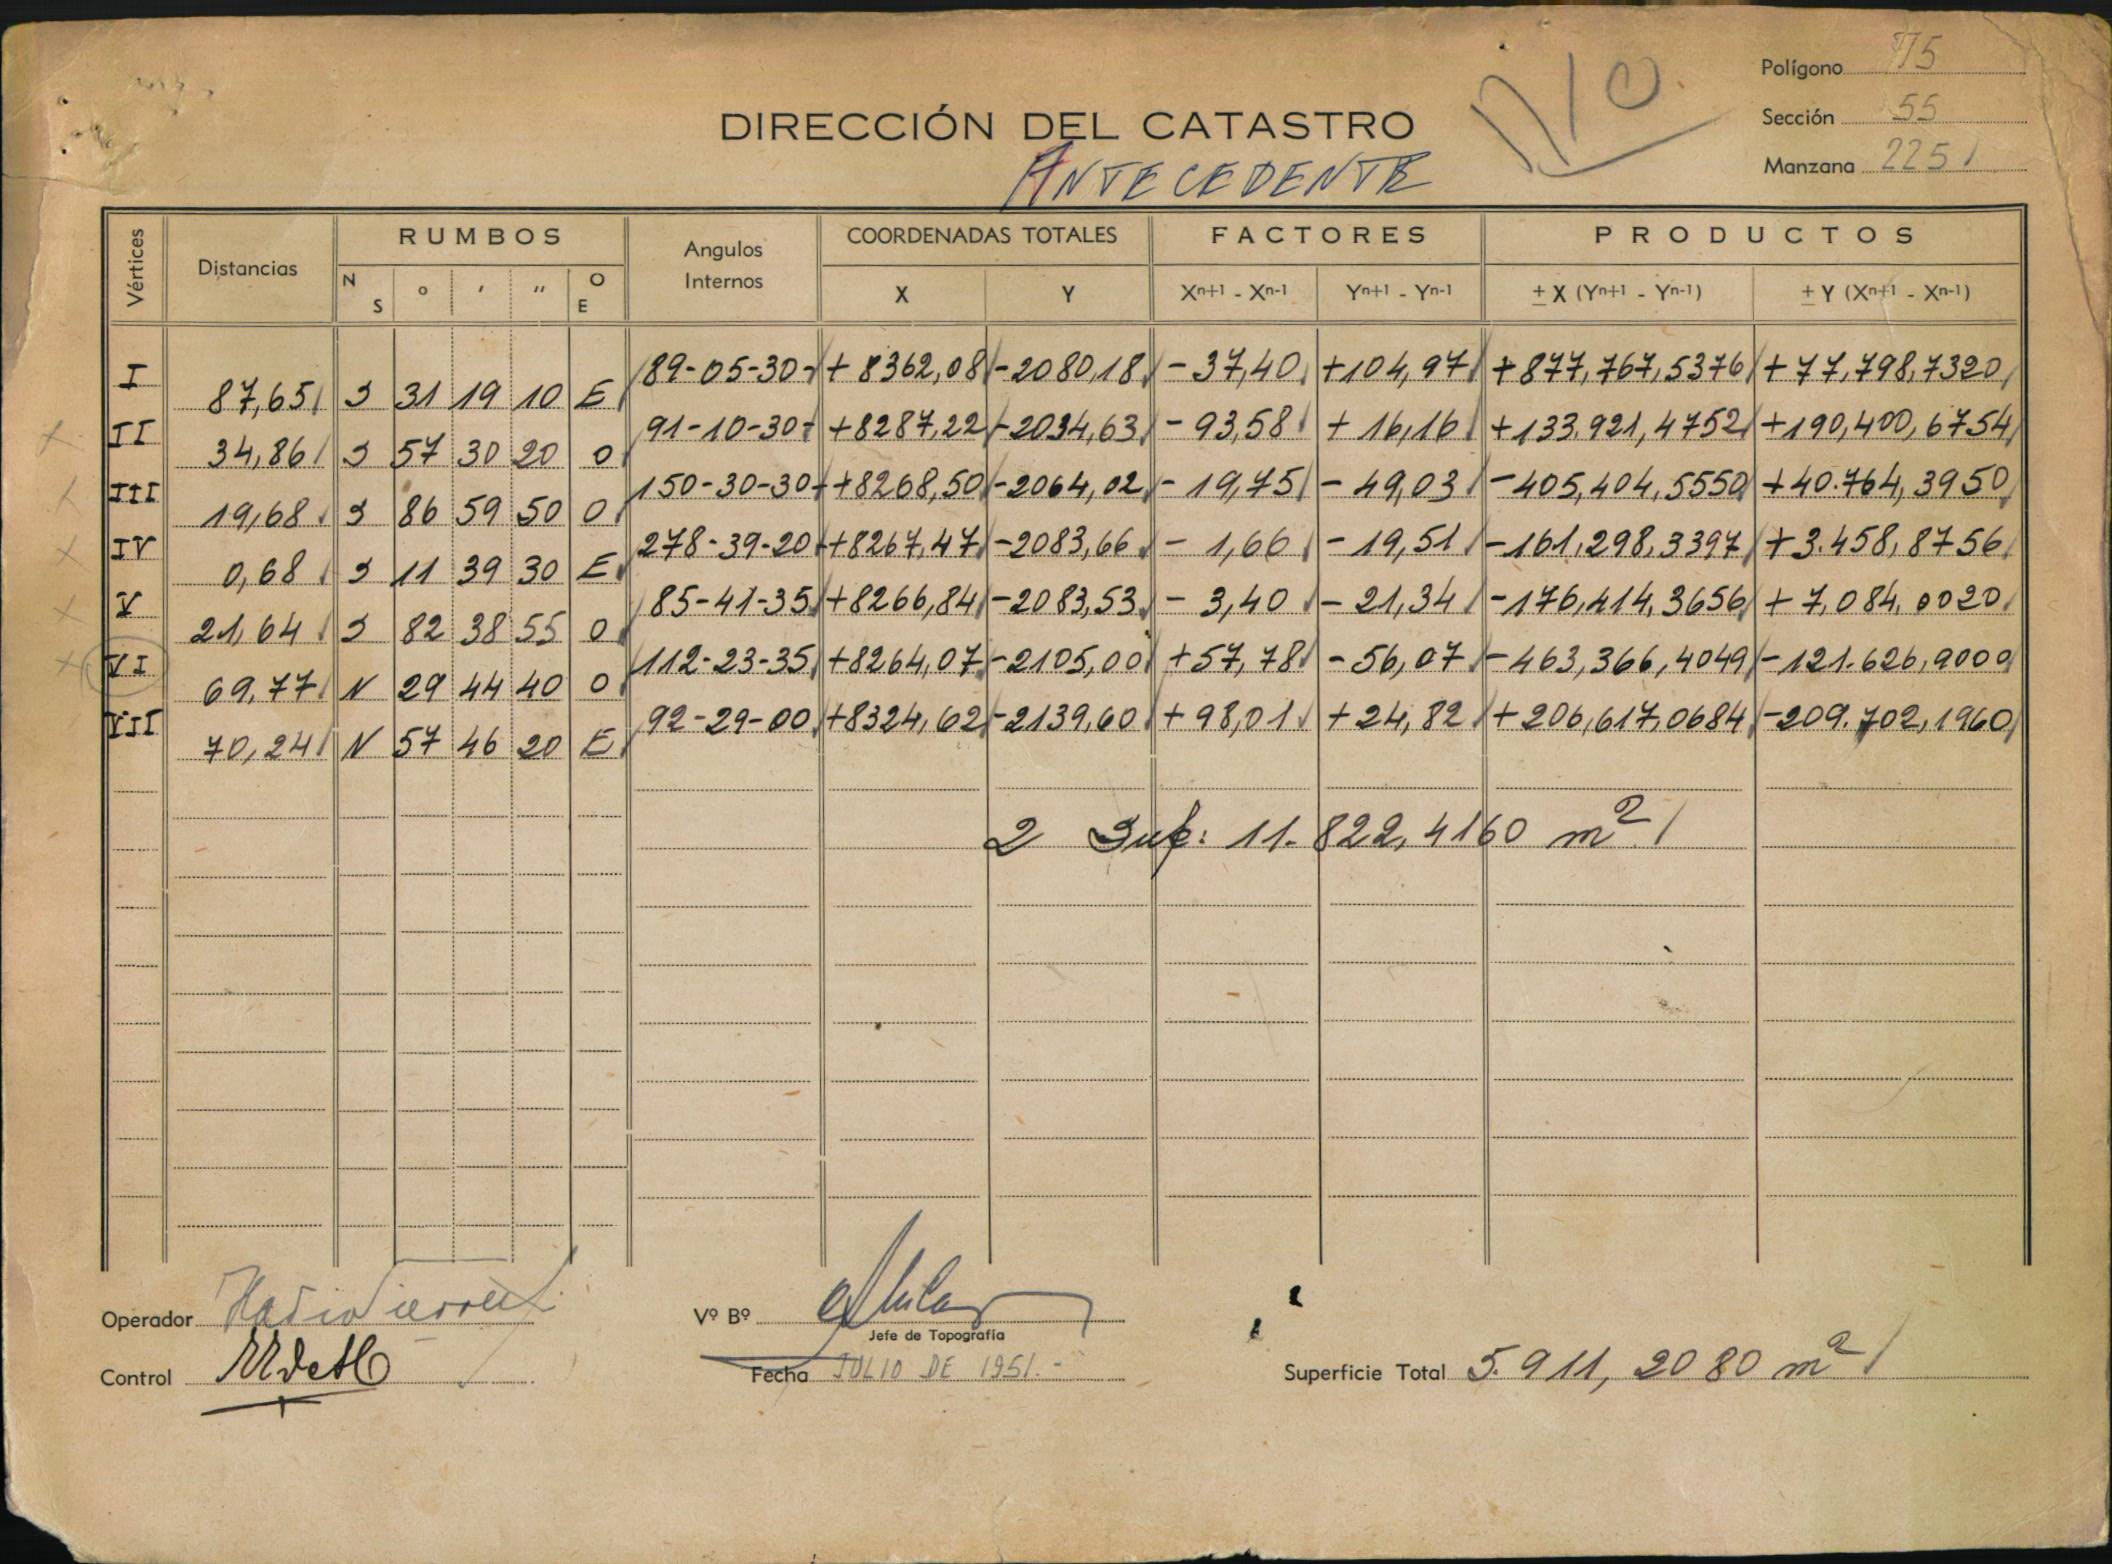 Polígono 75
DIRECCIÓN DEL CATASTRO
No
Sección 55
ANTECEDENTE
Manzana 2251
Vértices Distancias RUMBOS Angulos Internos COORDENADAS TOTALES FACTORES PRODUCTOS
N S o ' " O E X Y Xn+1 - Xn-1 Yn+1 - Yn-1 ± X (Yn+1 - Yn-1) ± Y (Xn+1 - Xn-1)
I 89-05-30- +8362,08 -2080,18 -37,40 +104,97 +877,767,5376 +77,798,7320
87,65 S 31 19 10 E
II 91-10-30- +8287,22 -2034,63 -93,58 +16,16 +133.921,4752 +190,400,6754
34,86 S 57 30 20 O
III 150-30-30- +8268,50 -2064,02 -19,75 -49,03 -405,404,5550 +40.764,3950
19,68 S 86 59 50 O
IV 278-39-20- +8267,47 -2083,66 -1,66 -19,51 -161.298,3397 +3.458,8756
0,68 S 11 39 30 E
V 85-41-35 +8266,84 -2083,53 -3,40 -21,34 -176,414,3656 +7,084,0020
21,64 S 82 38 55 O
VI 112-23-35 +8264,07 -2105,00 +57,78 -56,07 -463,366,4049 -121.626,9000
69,77 N 29 44 40 O
VII 92-29-00 +8324,62 -2139,60 +98,01 +24,82 +206,617,0684 -209.702,1960
70,24 N 57 46 20 E
2 Sup: 11.822,4160 m²
Operador
Vº Bº
Jefe de Topografía
Control
Fecha JULIO DE 1951.-
Superficie Total 5.911,2080 m²